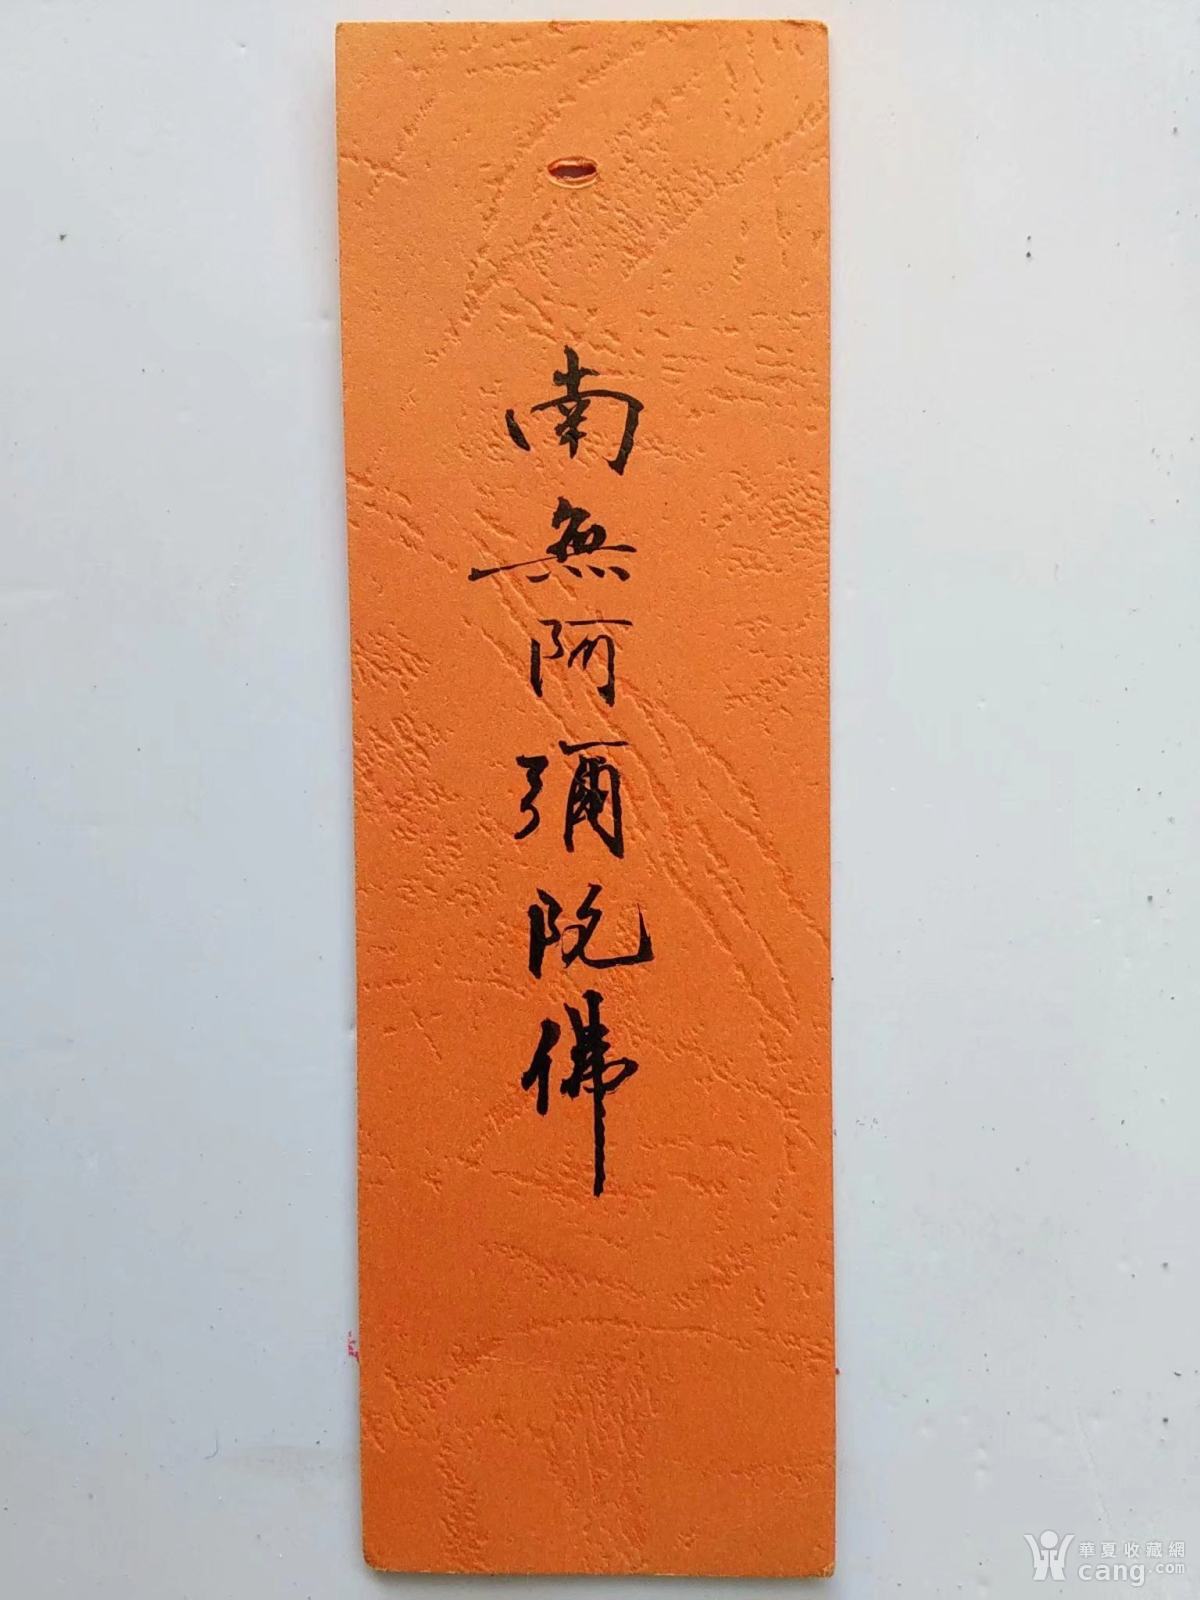 南無阿彌陀佛
華夏收藏網
cang.com